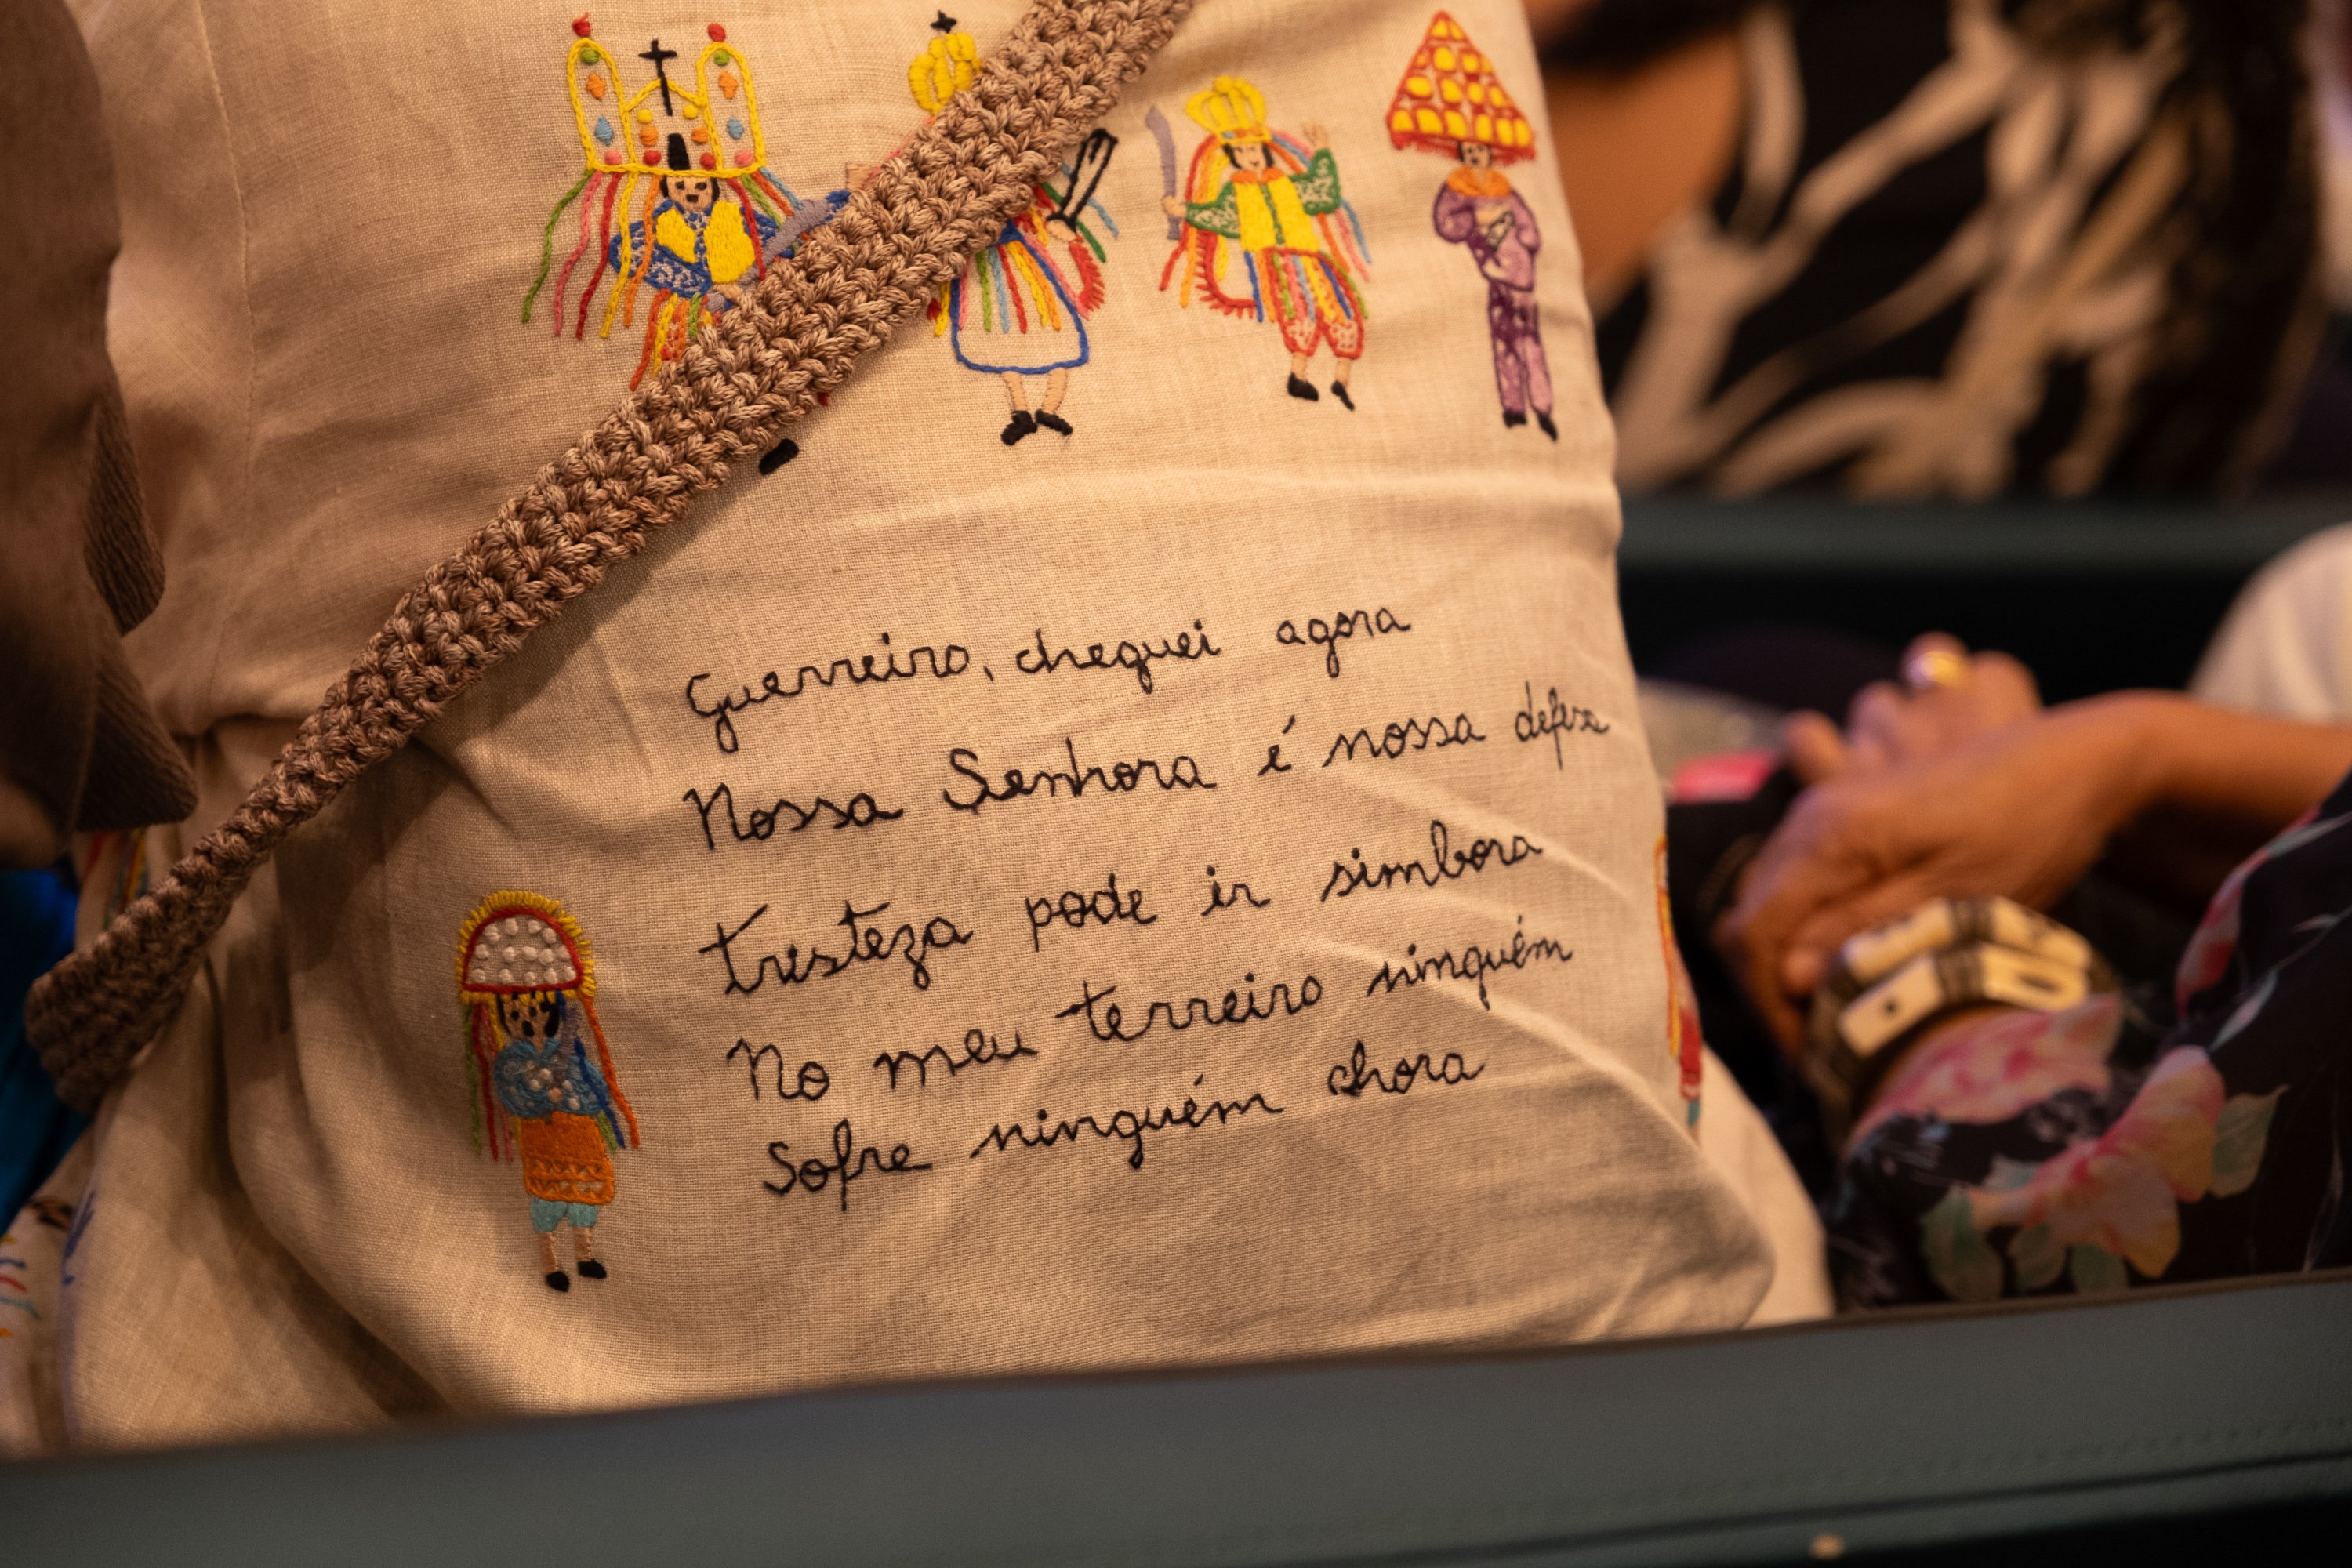 Guerreiro, cheguei agora
Nossa Senhora é nossa defesa
tristeza pode ir simbora
No meu terreiro ninguém
Sofre ninguém chora